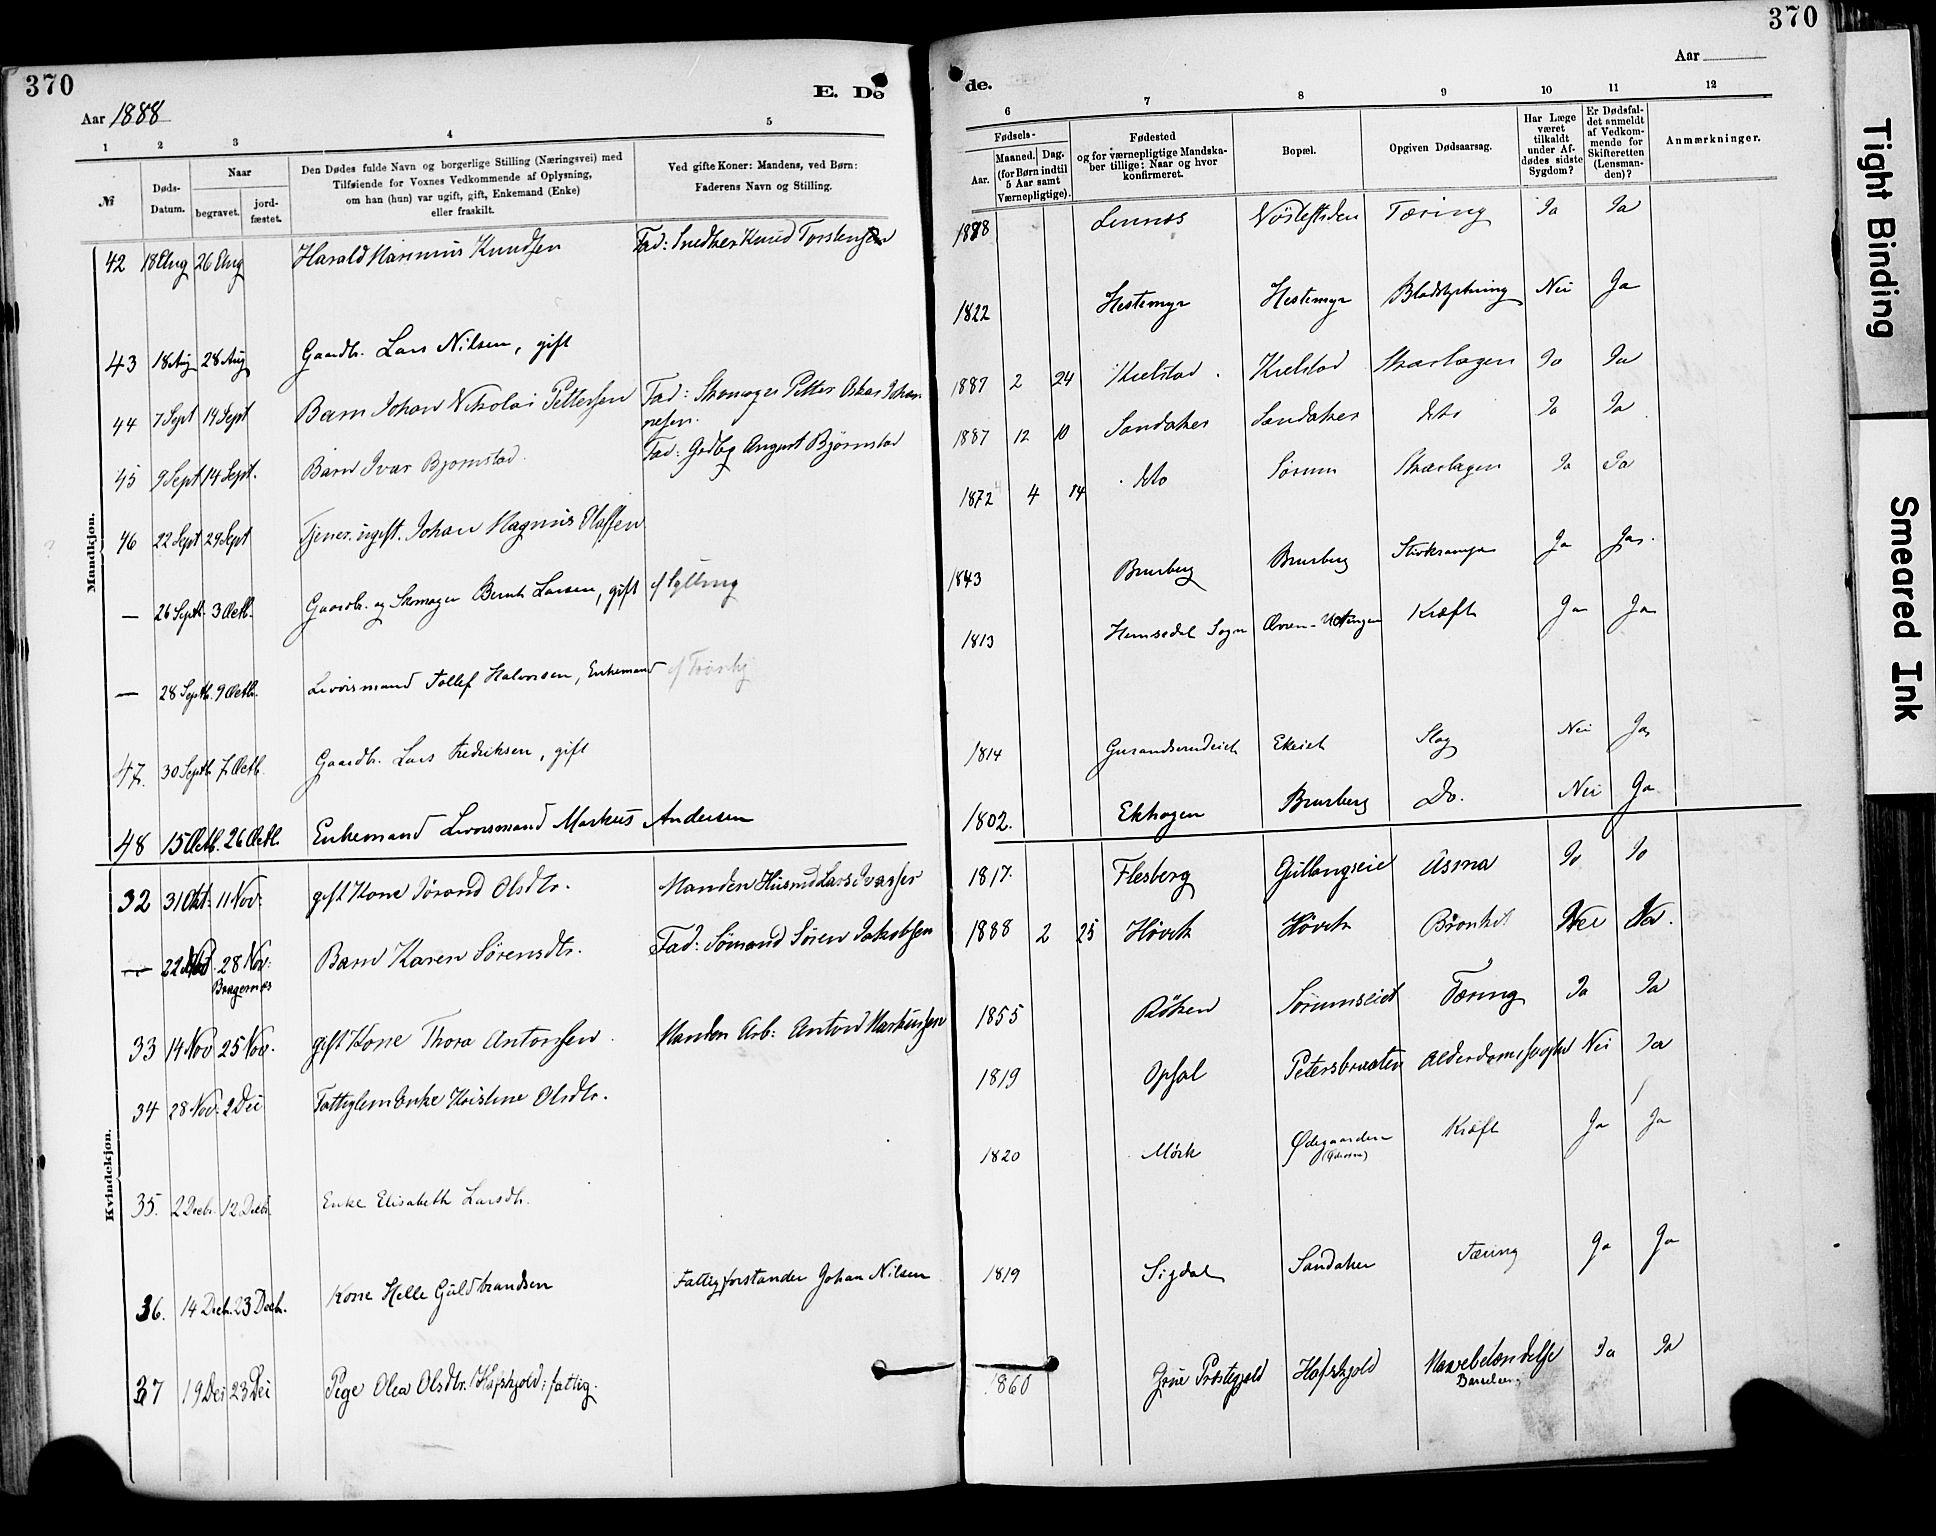 370
Aar 1888
E. Dø
1 2 3 4 5
№
Døds-
Datum.
Naar
begravet.
jord-
fæstet.
Den Dødes fulde Navn og borgerlige Stilling (Næringsvei) med
Tilføiende for Voxnes Vedkommende af Oplysning,
om han (hun) var ugift, gift, Enkemand (Enke)
eller fraskilt.
Ved gifte Koner: Mandens, ved Børn:
Faderens Navn og Stilling.
Mandkjøn.
42 18 Aug 26 Aug Harald Marinius Knudsen Fad: Snedker Knud Torstensen
43 18 Aug 28 Aug Gaardbr. Lars Nilsen, gift
44 7 Sept 14 Sept Barn Johan Nikolai Pettersen Fad: Skomager Petter Oskar Johan-
nesen.
45 9 Sept 14 Sept. Barn Ivar Bjørnstad. Fad: Gbrbg August Bjørnstad
46 22 Sept 29 Sept Tjener. ugift. Johan Magnus Olafsen
— 26 Septb. 3 Octb. Gaardbr. og Skomager Bernt Larsen, gift / Sylling
— 28 Septb. 9 Octb. Livørsmand Tollef Halvorsen, Enkemand
47. 30 Septb 7 Octb. Gaardbr. Lars Fredriksen, gift
48 15 Octb. 26 Octb. Enkemand Livørsmand Markus Andersen
Kvindekjøn.
32 31 Okt. 11 Nov. gift Kone Jørand Olsdtr. Manden Husmd Lars Iversen
— 22 Nov. 28 Nov. Barn Karen Sørensdtr. Fad: Sømand Søren Jakobsen
Bragernæs
33 14 Nov 25 Nov. gift Kone Thora Antonsen. Manden Arb: Anton Markussen
34 28 Nov. 2 Dec Fattiglem Enke Kristine Olsdtr.
35. 2 Decbr. 12 Decbr. Enke Elisabeth Larsdtr.
36. 14 Decb. 23 Decb. Kone Helle Guldbrandsen Fattigforstander Johan Nilsen
37 19 Dec 23 Dec Pige Olea Olsdtr. Hafskjold: fattig.
370
Aar
de.
6 7 8 9 10 11 12
Fødsels-
Aar.
Maaned. Dag.
(for Børn indtil
5 Aar samt
Værnepligtige).
Fødested
og for værnepligtige Mandska-
ber tillige: Naar og hvor
konfirmeret.
Bopæl.
Opgiven Dødsaarsag.
Har Læge
været
tilkaldt
under Af-
dødes sidste
Sygdom?
Er Dødsfal-
det anmeldt
af Vedkom-
mende for
Skifteretten
(Lensman-
den)?
Anmærkninger.
1888 Lennes Tæring Ja Ja
1822 Hestemyr Hestemyr Blodstyrtning Nei Ja
1887 2 24 Kielstad Kielstad Skarlagen Ja Ja
1887 12 10 Sandaker Sandaker dto Ja Ja
1872 4 14 dto Sørum Skarlagen Ja Ja
1843 Brurberg Brurberg Stivkrampe Ja Ja.
1813 Hemsedal Sogn Kræft Ja Ja
1814 Ekeiet Slag Nei Ja
1802. Ekhagen Brurberg Do. Nei Ja
1817. Flesberg Gullaugseie Asma Ja Ja
1888 2 25 Høvik Høvik Bronkit Nei Ja.
1855 Røken Sørumseiet Tæring Ja Ja
1819 Opsal Petersbraaten Alderdomssvaghed Nei Ja
1820 Mörk Ødegaarden Kræft Ja Ja
1819 Sigdal Sandaker Tæring Ja Ja
1860 Grue Præstegjeld Hafskjold Mavebetændelse Ja Ja
Tight Binding
Smeared Ink